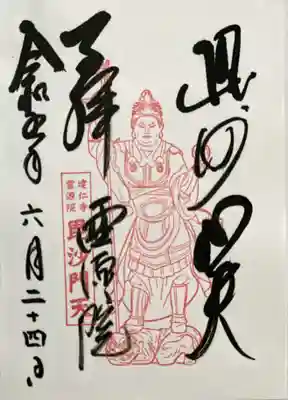 毘沙門天
奉拝 霊源院
建仁寺
霊源院
毘沙門天
令和五年六月二十四日